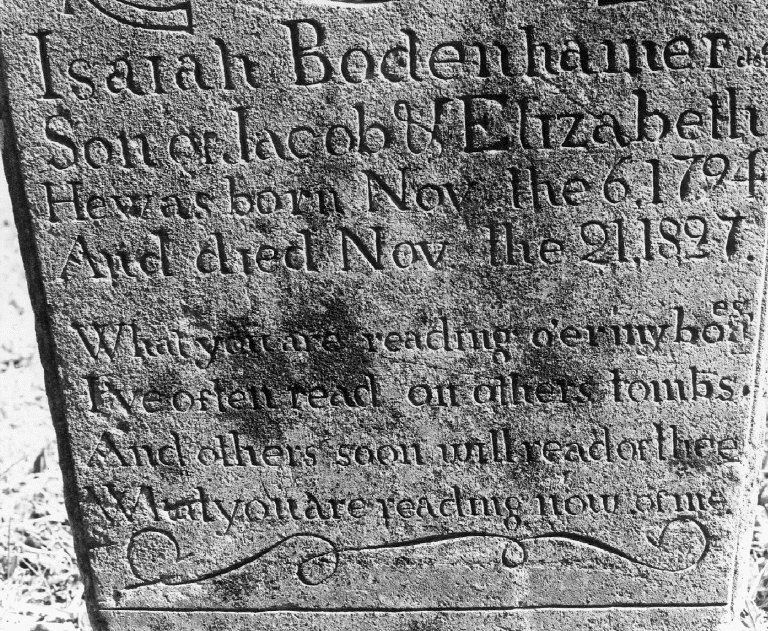 Isaiah Bodenhamer
Son of Jacob & Elizabeth
He was born Nov the 6, 1794
And died Nov the 21, 1827.
What you are reading o'er my bones
I've often read on others tombs.
And others soon will read of thee
What you are reading now of me